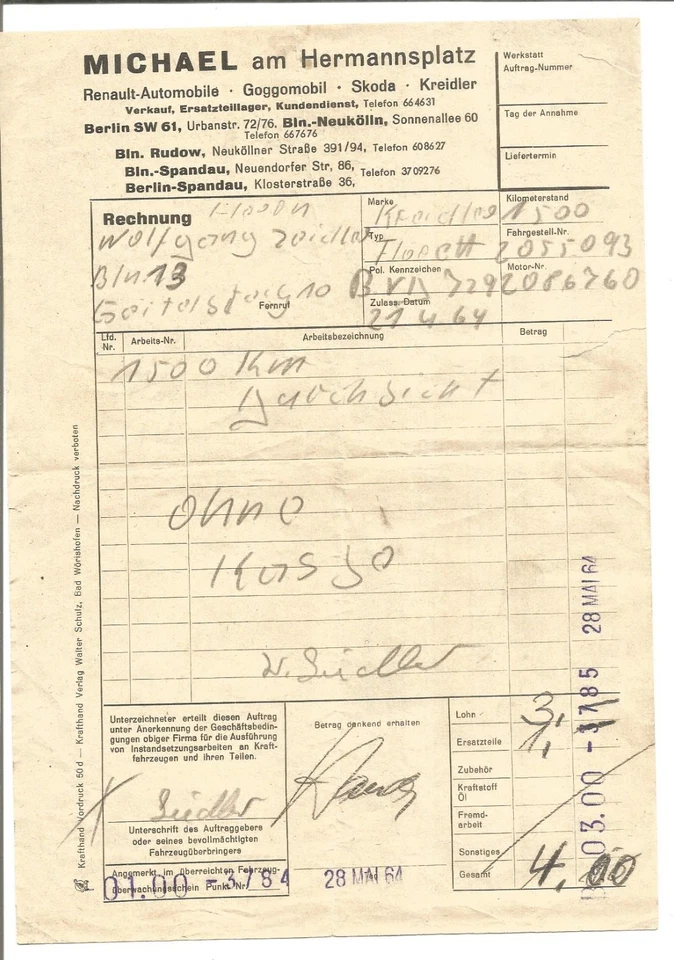 MICHAEL am Hermannsplatz
Renault-Automobile · Goggomobil · Skoda · Kreidler
Verkauf, Ersatzteillager, Kundendienst, Telefon 664631
Berlin SW 61, Urbanstr. 72/76. Bln.-Neukölln, Sonnenallee 60
Telefon 667676
Bln. Rudow, Neuköllner Straße 391/94, Telefon 608627
Bln.-Spandau, Neuendorfer Str, 86, Telefon 3709276
Berlin-Spandau, Klosterstraße 36,
Werkstatt
Auftrag-Nummer
Tag der Annahme
Liefertermin
Rechnung
Wolfgang
Bln 13
10
Fernruf
Marke
Kreidler
Typ
Florett
Pol. Kennzeichen
Zulass. Datum
21 4 64
Kilometerstand
1500
Fahrgestell-Nr.
2055093
Motor-Nr.
2086760
Lfd. Nr.
Arbeits-Nr.
Arbeitsbezeichnung
Betrag
1500 Km
Durchsicht
ohne
Unterzeichneter erteilt diesen Auftrag
unter Anerkennung der Geschäftsbedin-
gungen obiger Firma für die Ausführung
von Instandsetzungsarbeiten an Kraft-
fahrzeugen und ihren Teilen.
Unterschrift des Auftraggebers
oder seines bevollmächtigten
Fahrzeugüberbringers
Angemerkt im überreichten Fahrzeug-
überwachungsschein Punkt Nr.
01.00 -3784
Betrag dankend erhalten
28 MAI 64
Lohn 3,
Ersatzteile 1,
Zubehör
Kraftstoff
Öl
Fremd-
arbeit
Sonstiges
Gesamt 4,00
03.00 -3785 28 MAI 64
Krafthand Vordruck 50 d — Krafthand Verlag Walter Schulz, Bad Wörishofen — Nachdruck verboten